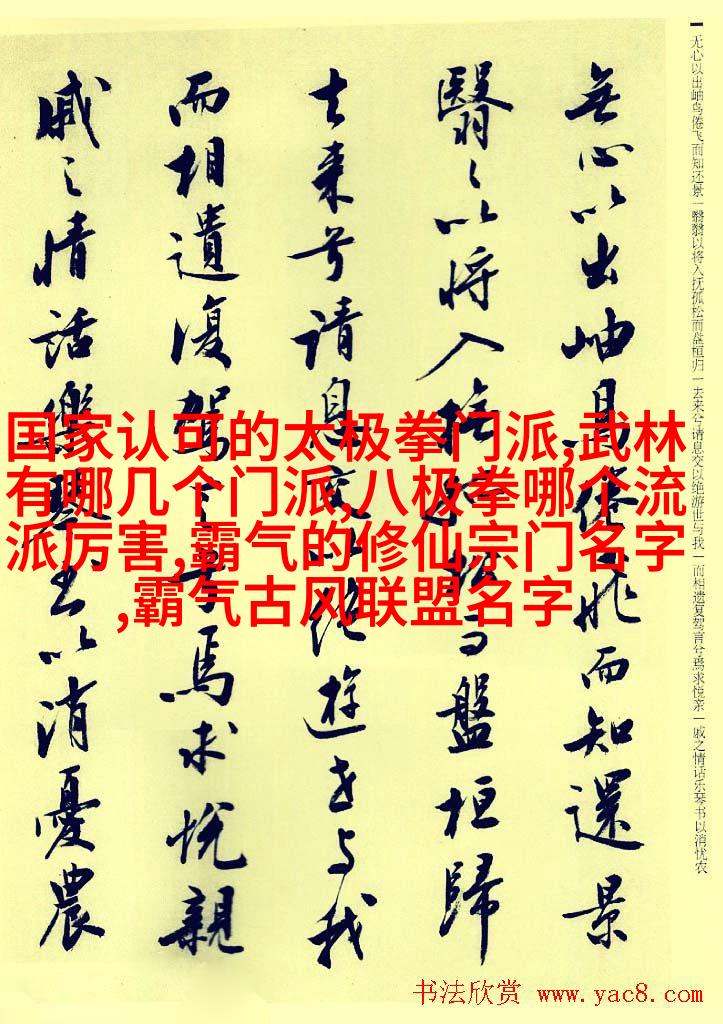 国家认可的太极拳门派,武林
有哪几个门派,八极拳哪个流
派厉害,霸气的修仙宗门名字
,霸气古风联盟名字
无心以出岫鸟倦飞而知还景|翳翳以将入抚孤松而盘桓归|去来兮请息交以绝游世与我|而相遗复驾言兮焉求悦亲|戚之情话乐琴书以消忧农
無心以出岫鳥倦飛而知還景
翳々以將入撫孤松而盤桓歸
去来兮請息交以絶遊世与我
而相遺復駕言兮焉求悅親
戚之情話樂琴書以消憂農
书法欣赏 www.yac8.com